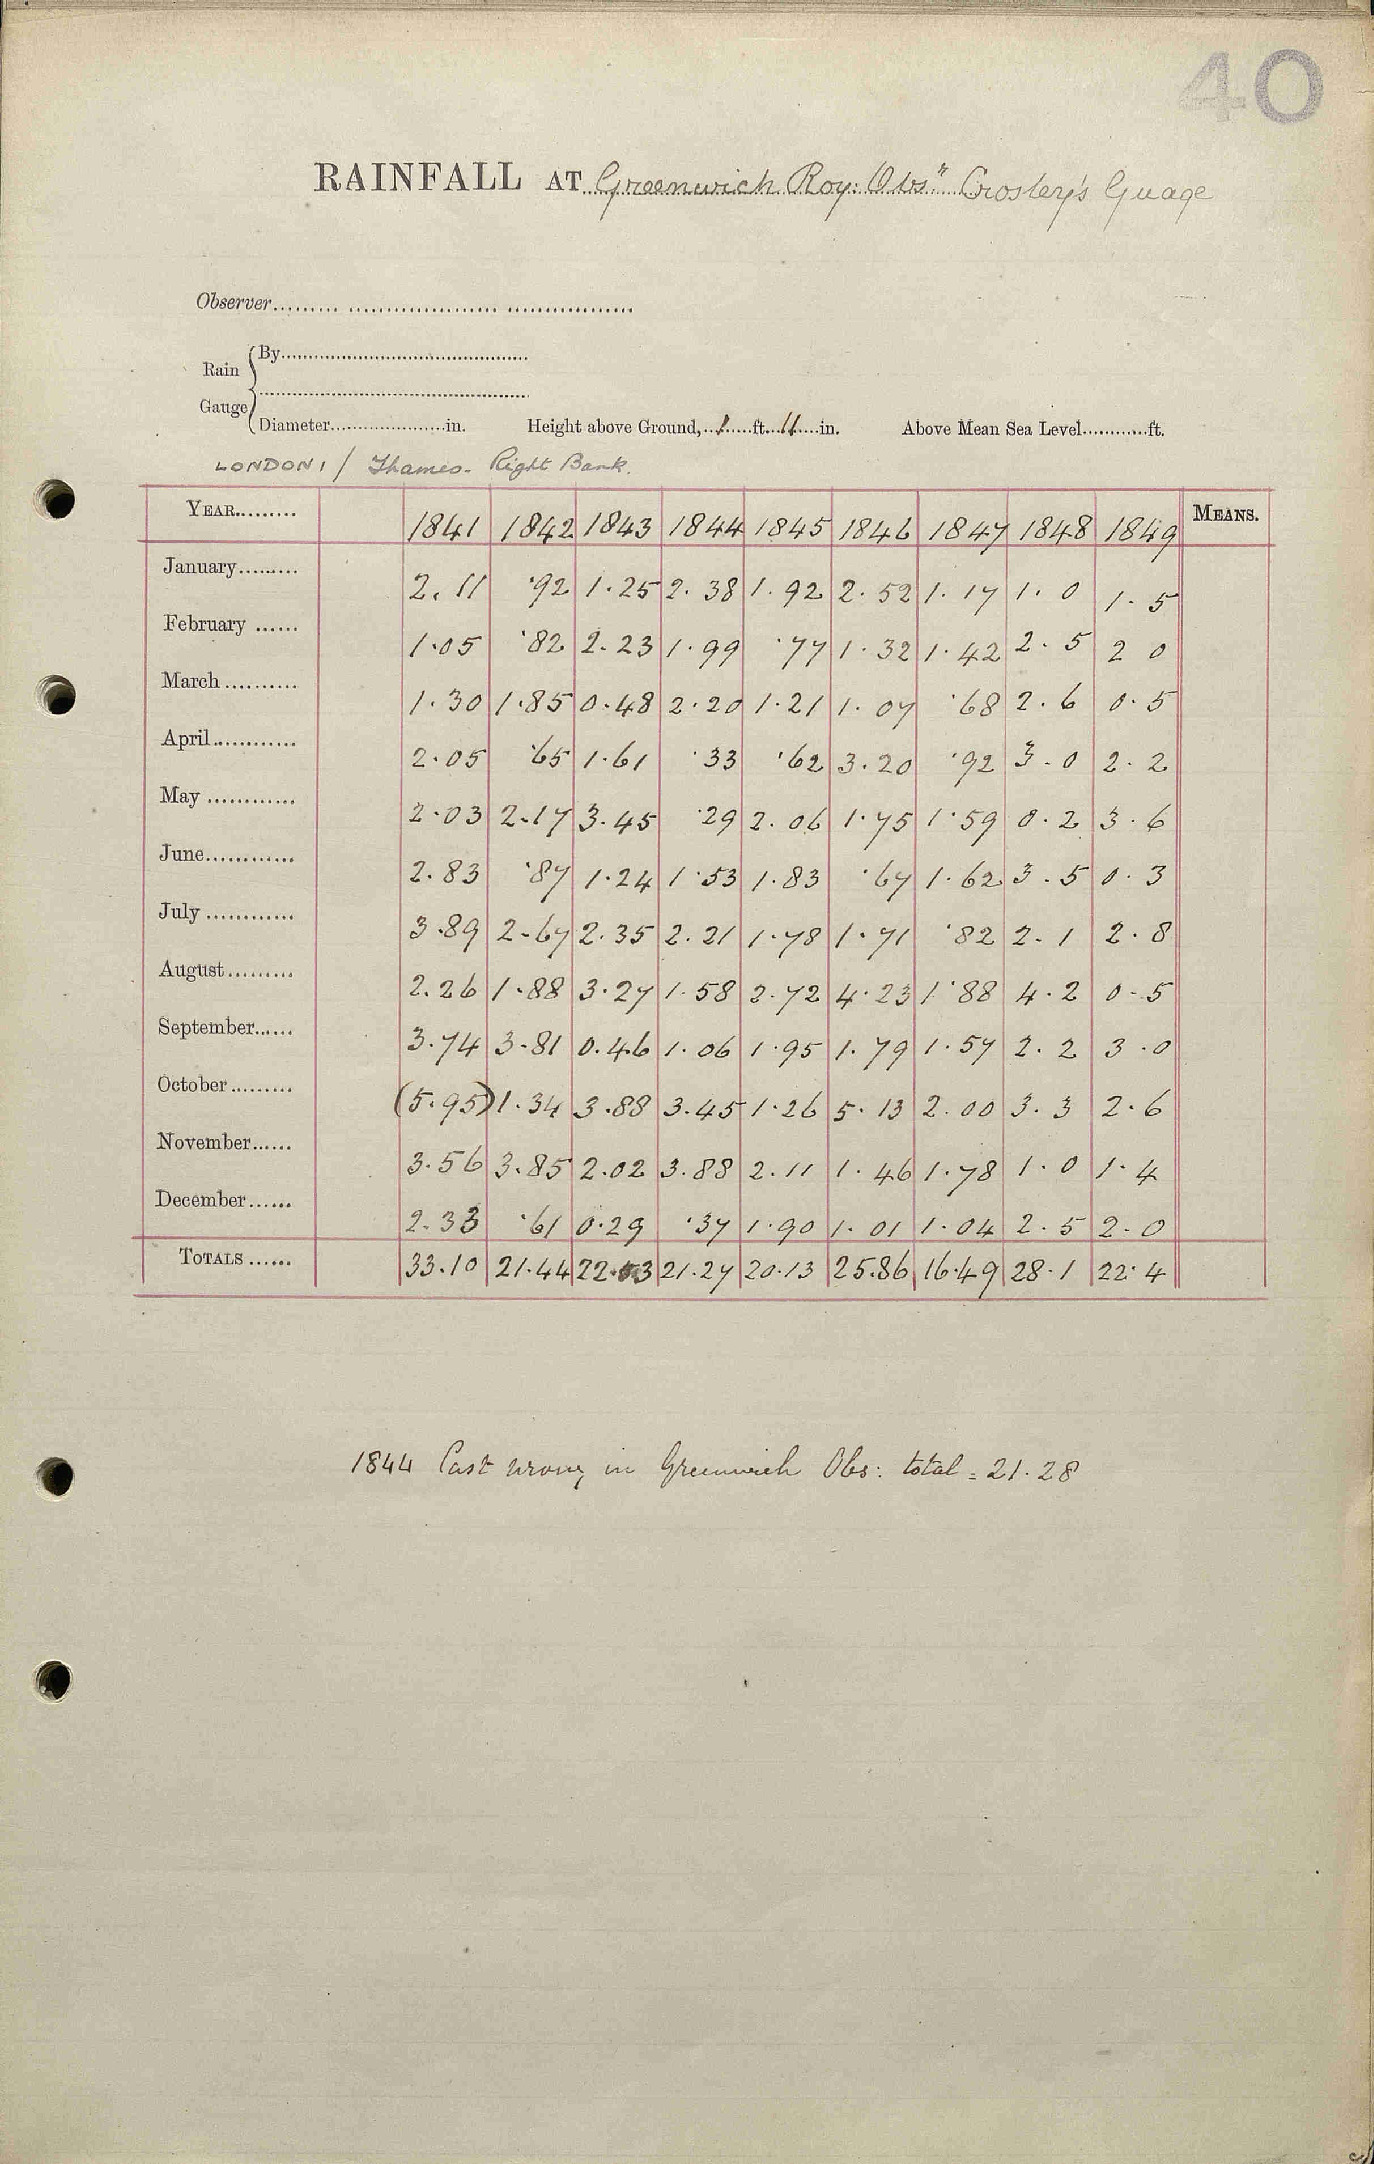 40
RAINFALL AT Greenwich Roy: Obsʸ Crosley's Guage
Observer
Rain Gauge
By
Diameter in. Height above Ground, 1 ft. 11 in. Above Mean Sea Level ft.
LONDON 1 / Thames - Right Bank.
YEAR 1841 1842 1843 1844 1845 1846 1847 1848 1849 MEANS.
January 2.11 .92 1.25 2.38 1.92 2.52 1.17 1.0 1.5
February 1.05 .82 2.23 1.99 .77 1.32 1.42 2.5 2 0
March 1.30 1.85 0.48 2.20 1.21 1.07 .68 2.6 0.5
April 2.05 .65 1.61 .33 .62 3.20 .92 3.0 2.2
May 2.03 2.17 3.45 .29 2.06 1.75 1.59 0.2 3.6
June 2.83 .87 1.24 1.53 1.83 .67 1.62 3.5 0.3
July 3.89 2.67 2.35 2.21 1.78 1.71 .82 2.1 2.8
August 2.26 1.88 3.27 1.58 2.72 4.23 1.88 4.2 0.5
September 3.74 3.81 0.46 1.06 1.95 1.79 1.57 2.2 3.0
October (5.95) 1.34 3.88 3.45 1.26 5.13 2.00 3.3 2.6
November 3.56 3.85 2.02 3.88 2.11 1.46 1.78 1.0 1.4
December 2.33 .61 0.29 .37 1.90 1.01 1.04 2.5 2.0
TOTALS 33.10 21.44 22.53 21.27 20.13 25.86 16.49 28.1 22.4
1844 Cast wrong in Greenwich Obs: total = 21.28